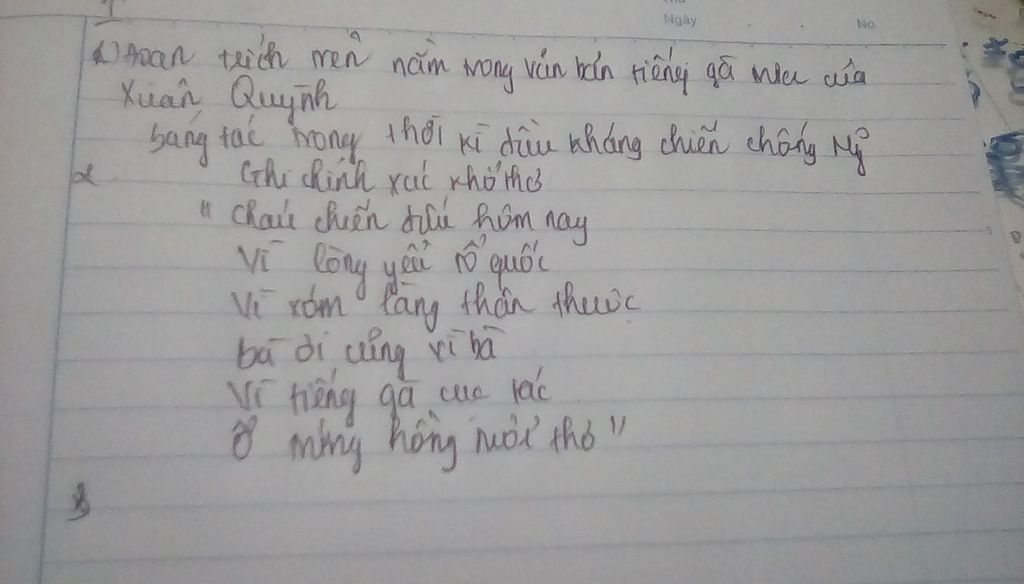 Ngày No
1) Đoan trích trên nằm trong văn bản tiếng gà trưa của
Xuân Quỳnh
Sáng tác trong thời kì đầu kháng chiến chống Mỹ
2 Ghi chính xác khổ thơ
" cháu chiến đấu hôm nay
Vì lòng yêu tổ quốc
Vì xóm làng thân thuộc
bà ơi cũng vì bà
Vì tiếng gà cục tác
Ổ trứng hồng tuổi thơ "
3